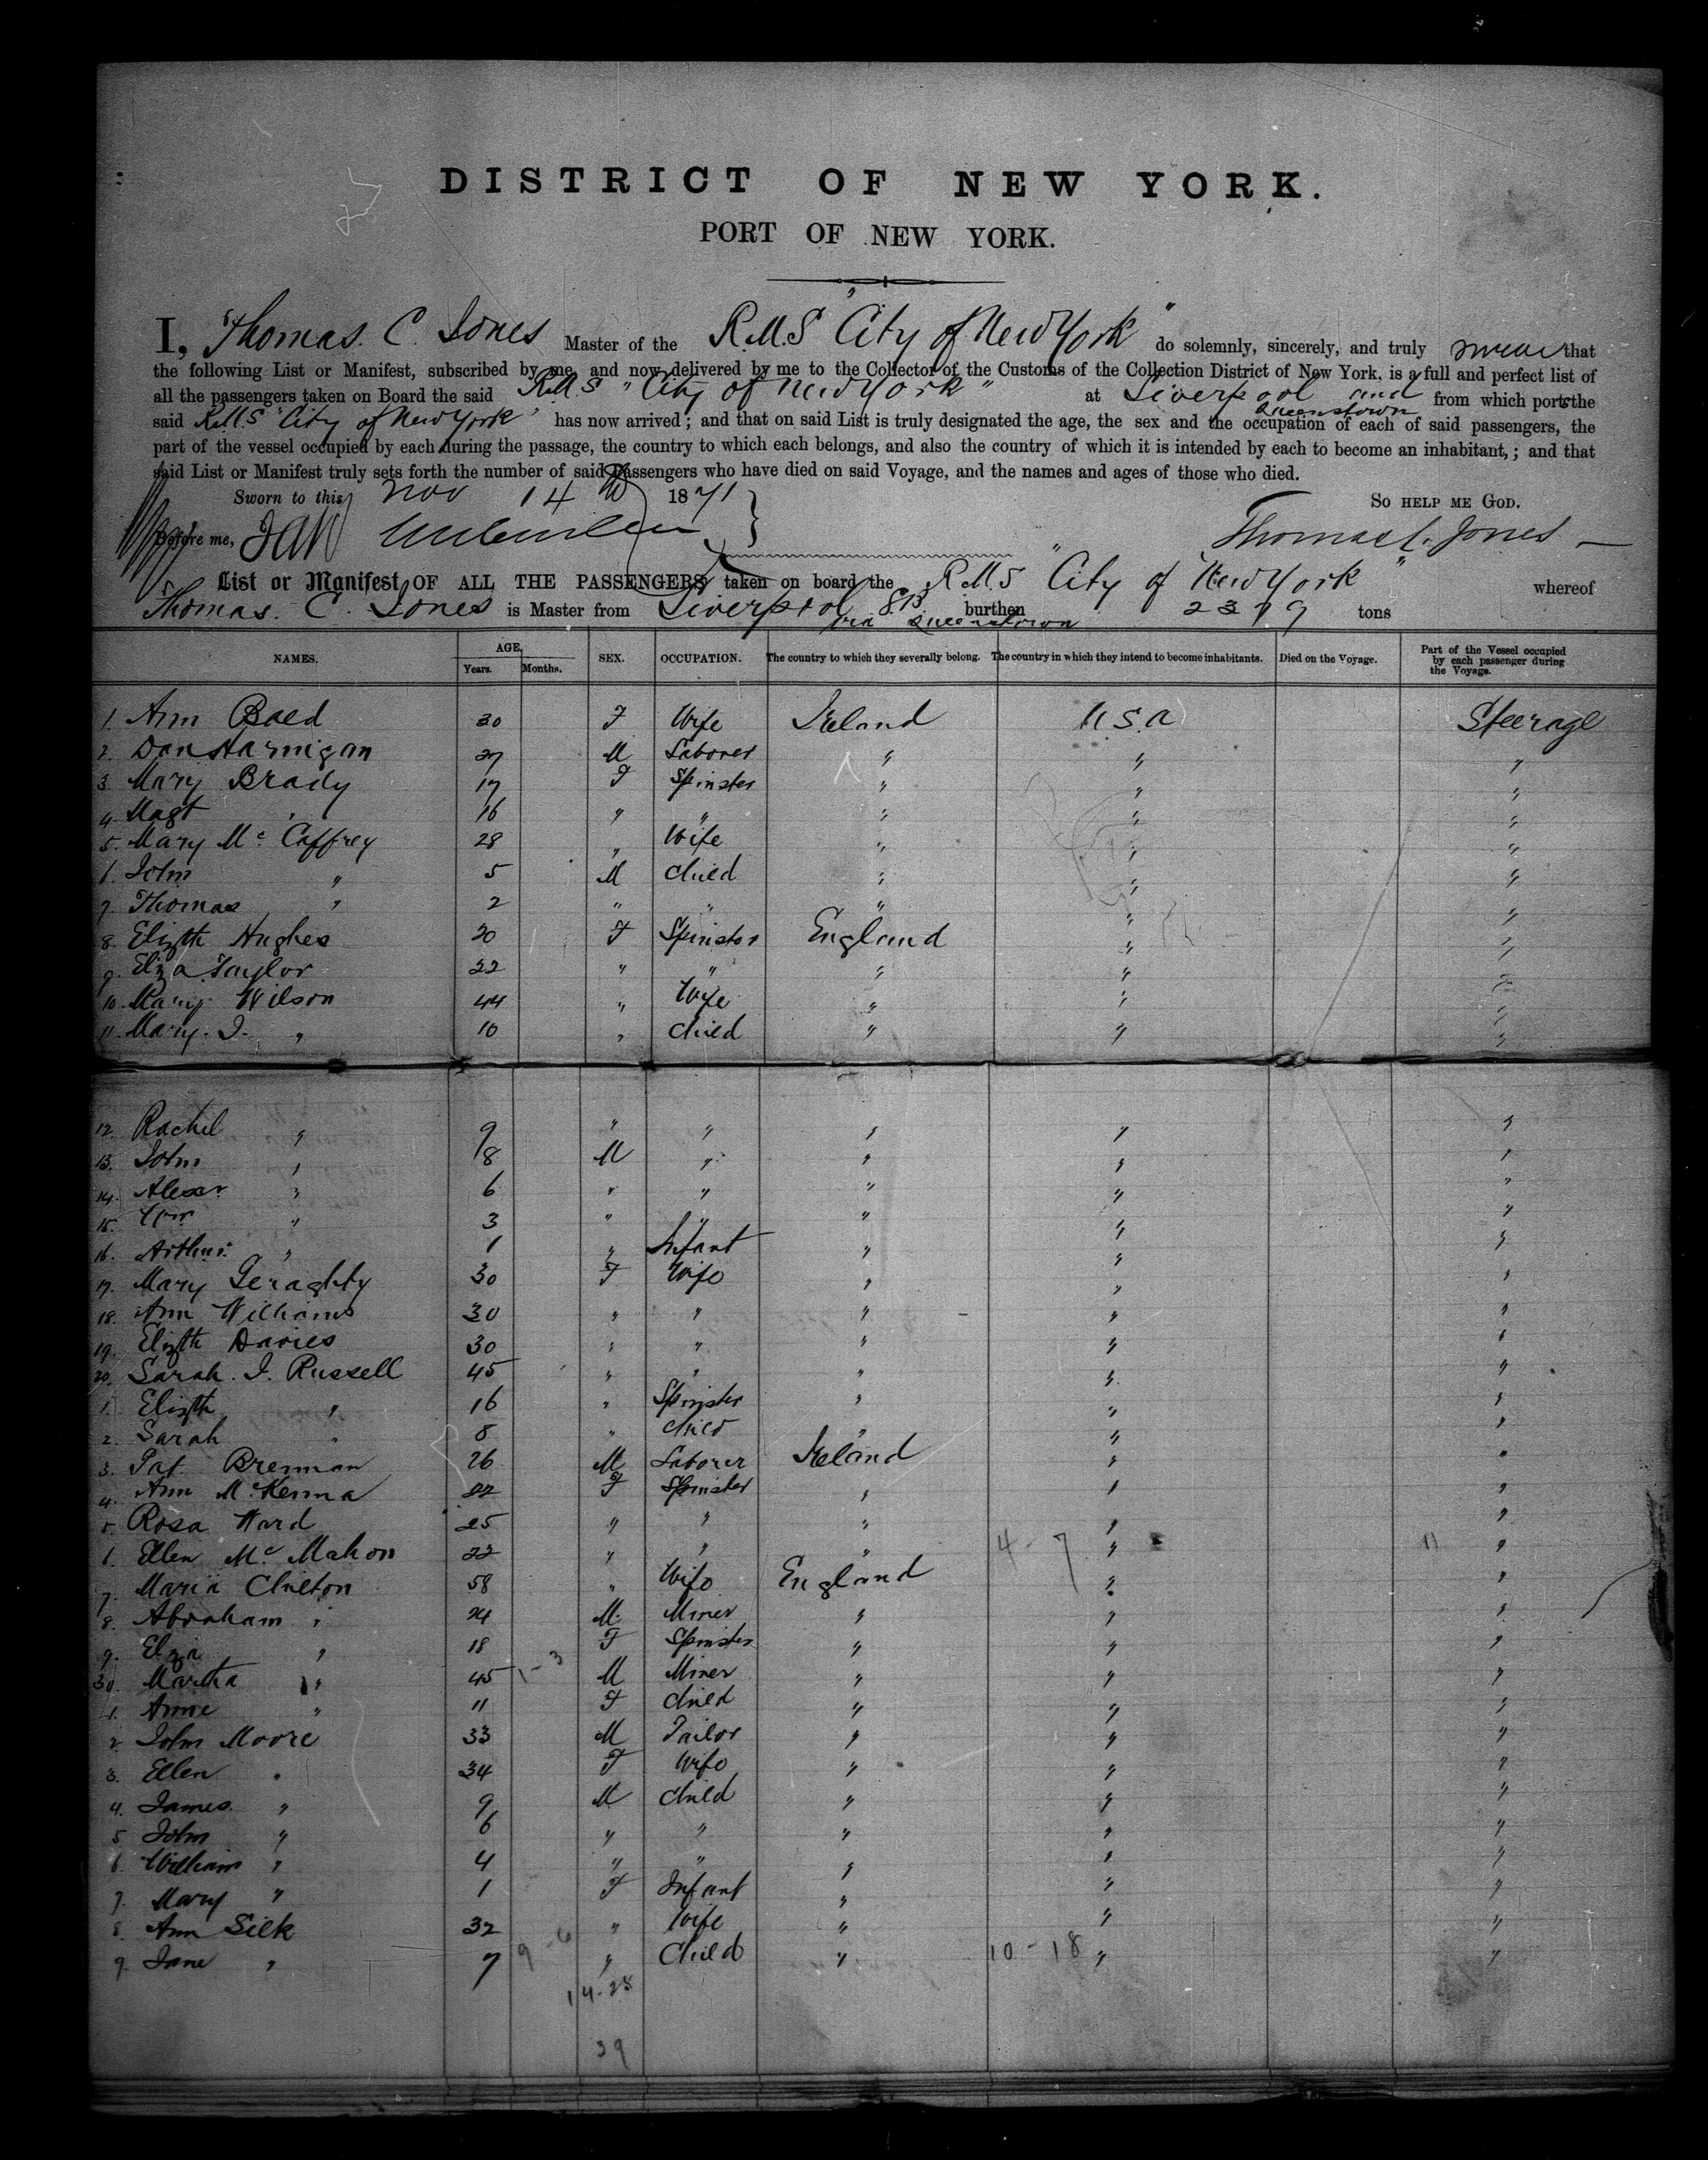 DISTRICT OF NEW YORK.
PORT OF NEW YORK.
I, Thomas. C. Jones Master of the R.M.S "City of New York" do solemnly, sincerely, and truly swear that
the following List or Manifest, subscribed by me, and now delivered by me to the Collector of the Customs of the Collection District of New York, is a full and perfect list of
all the passengers taken on Board the said R.M.S "City of New York" at Liverpool and Queenstown from which ports the
said R.M.S "City of New York" has now arrived; and that on said List is truly designated the age, the sex and the occupation of each of said passengers, the
part of the vessel occupied by each during the passage, the country to which each belongs, and also the country of which it is intended by each to become an inhabitant,; and that
said List or Manifest truly sets forth the number of said Passengers who have died on said Voyage, and the names and ages of those who died.
Sworn to this Nov 14th 1871 So HELP ME GOD.
Before me, Thomas C. Jones
List or Manifest OF ALL THE PASSENGERS taken on board the R.M.S "City of New York" whereof
Thomas. C. Jones is Master from Liverpool via Queenstown burthen 2379 tons
NAMES. AGE. Years. Months. SEX. OCCUPATION. The country to which they severally belong. The country in which they intend to become inhabitants. Died on the Voyage. Part of the Vessel occupied by each passenger during the Voyage.
1. Ann 30 F Wife Ireland U.S.A Steerage
2. Dan Harnigan 27 M Laborer " " "
3. Mary Brady 17 F Spinster " " "
4. Magt " 16 " " " " "
5. Mary Mc Caffrey 28 " Wife " " "
6. John " 5 M Child " " "
7. Thomas " 2 " " " " "
8. Elizth Hughes 20 F Spinster England " "
9. Eliza Taylor 22 " " " " "
10. Mary Wilson 44 " Wife " " "
11. Mary. J. " 10 " Child " " "
12. Rachel " 9 " " " " "
13. John " 8 M " " " "
14. Alexr " 6 " " " " "
15. Wm " 3 " " " " "
16. Arthur " 1 " Infant " " "
17. Mary Geraghty 30 F Wife " " "
18. Ann Williams 30 " " " " "
19. Elizth Davies 30 " " " " "
20. Sarah. J. Russell 45 " " " " "
1. Elizth " 16 " Spinster " " "
2. Sarah " 8 " Child " " "
3. Pat Brennan 26 M Laborer Ireland " "
4. Ann McKenna 22 F Spinster " " "
5. Rosa Ward 25 " " " " "
6. Ellen Mc Mahon 22 " " " 4-7 " 11 "
7. Maria Chilton 58 " Wife England " "
8. Abraham " 24 M. Miner " " "
9. Eliza " 18 F Spinster " " "
30. Martha " 45 1-3 M Miner " " "
1. Annie " 11 F Child " " "
2. John Moore 33 M Tailor " " "
3. Ellen " 34 F Wife " " "
4. James " 9 M Child " " "
5. John " 6 " " " " "
6. William " 4 " " " " "
7. Mary " 1 F Infant " " "
8. Ann Silk 32 " Wife " " "
9. Jane " 7 9-6 " Child " 10-18 " "
14-25
39